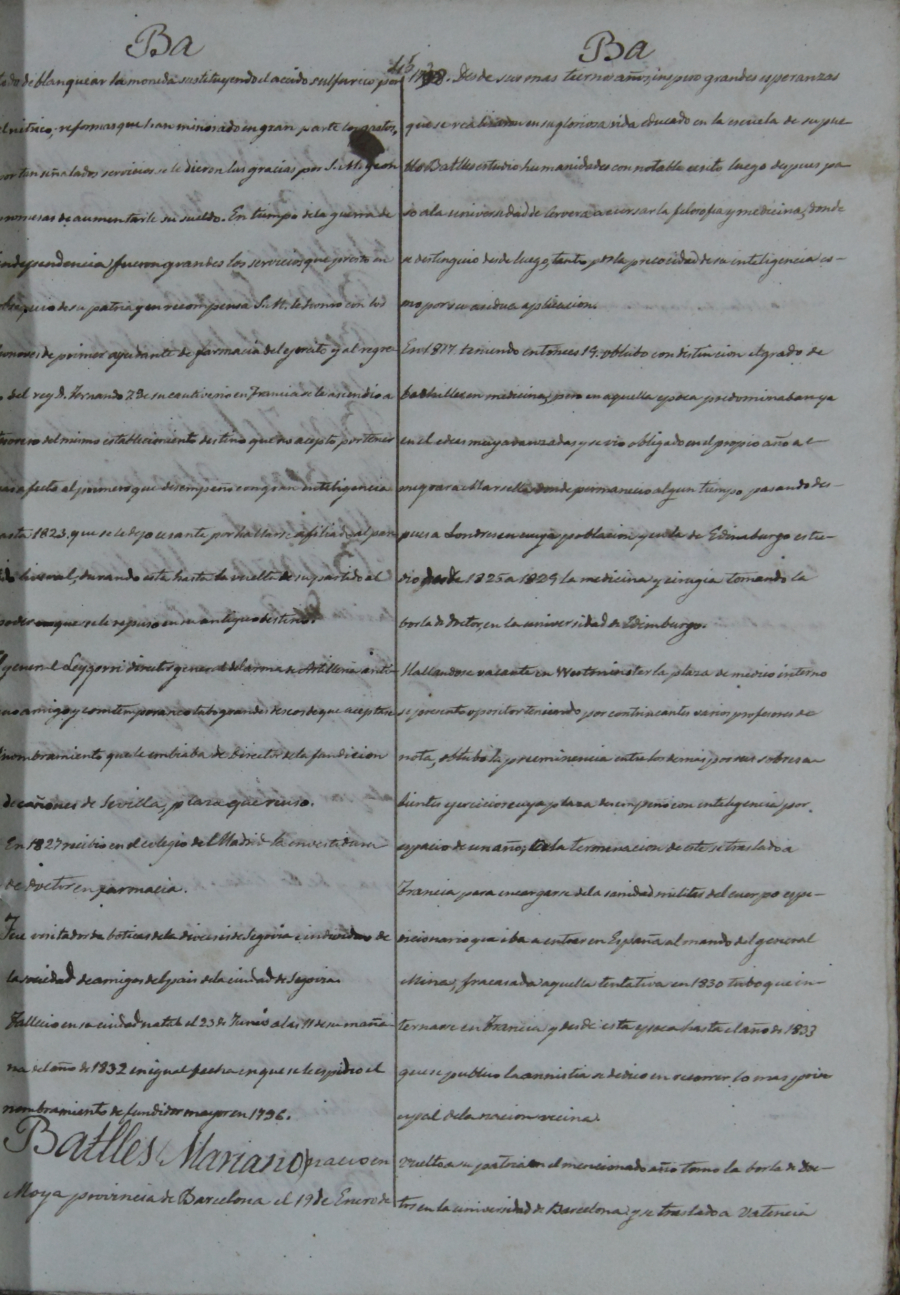 Ba
de blanquear la moneda sustituyendo el acido sulfurico por
nitrico, reformas que han minorado en gran parte los gastos,
por tan señalados servicios se le dieron las gracias por S. M. y con
promesas de aumentarle su sueldo. En tiempo de la guerra de
independencia, fueron grandes los servicios que presto en
obsequio de su patria y en recompensa S. M. le honro con los
honores de primer ayudante de farmacia del ejercito, y al regre-
del rey D. Fernando 7º de su cautiverio en Francia se le ascendio a
tesorero del mismo establecimiento destino que no acepto por tener
afecto al primero que desempeño con gran inteligencia
hasta 1823. que se le dejo cesante por hallarse afiliado al par
liberal, durando esta hasta la vuelta de su partido al
poder en que se le repuso en su antiguo destino.
general Loygorri director general del arma de Artilleria anti
amigo y contemporaneo tubo grandes deseos de que aceptara
nombramiento que le embiaba de Director de la fundicion
de cañones de Sevilla, plaza que reuso.
En 1827 recibio en el colegio de Madrid la investidura
de doctor en farmacia.
Fue visitador de boticas de la diocesis de Segovia e individuo de
la sociedad de amigos del pais de la ciudad de Segovia
Fallecio en su ciudad natal el 23 de Junio a las 11 de su maña
na del año de 1832 en igual fecha en que se le espidio el
nombramiento de fundidor mayor en 1796.
Batlles Mariano, nacio en
Moya provincia de Barcelona el 19 de Enero de
Ba
Desde sus mas tiernos años, inspiro grandes esperanzas
que se realizaron en su gloriosa vida educado en la escuela de su pue
blo Batlles estudio humanidades con notable exito luego despues pa
so a la universidad de Cervera a cursar la filosofia y medicina, donde
se distinguio desde luego, tanto por la precocidad de su inteligencia co-
mo por su asidua aplicacion.
En 1817. teniendo entonces 19. obtubo con distincion el grado de
bachiller en medicina, pero en aquella epoca predominaban ya
en el ideas muy abanzadas y se vio obligado en el propio año a e-
migrar a Marsella donde permanecio algun tiempo pasando des-
pues a Londres en cuya poblacion y en la de Edimburgo estu-
dio desde 1825 a 1829 la medicina y cirugia tomando la
borla de Doctor, en la universidad de Edimburgo.
Hallandose vacante en Westminster la plaza de medico interno
se presento opositor teniendo por contrincantes varios profesores de
nota, obtubo la preeminencia entre los demas por sus sobresa-
lientes ejercicios cuya plaza desempeño con inteligencia por
espacio de un año, a la terminacion de este se traslado a
Francia para encargarse de la sanidad militar del cuerpo espe-
dicionario que iba a entrar en España al mando del general
Mina, fracasada aquella tentativa en 1830 tubo que in-
ternarse en Francia y desde esta epoca hasta el año de 1833
que se publico la amnistia se dedico en recorrer lo mas prin
cipal de la nacion vecina.
Vuelto a su patria en el mencionado año tomo la borla de Doc-
tor en la universidad de Barcelona y se traslado a Valencia